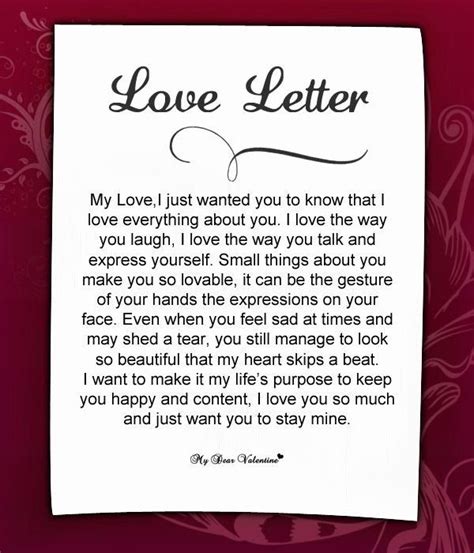 Love Letter
My Love,I just wanted you to know that I
love everything about you. I love the way
you laugh, I love the way you talk and
express yourself. Small things about you
make you so lovable, it can be the gesture
of your hands the expressions on your
face. Even when you feel sad at times and
may shed a tear, you still manage to look
so beautiful that my heart skips a beat.
I want to make it my life's purpose to keep
you happy and content, I love you so much
and just want you to stay mine.
My Dear Valentine